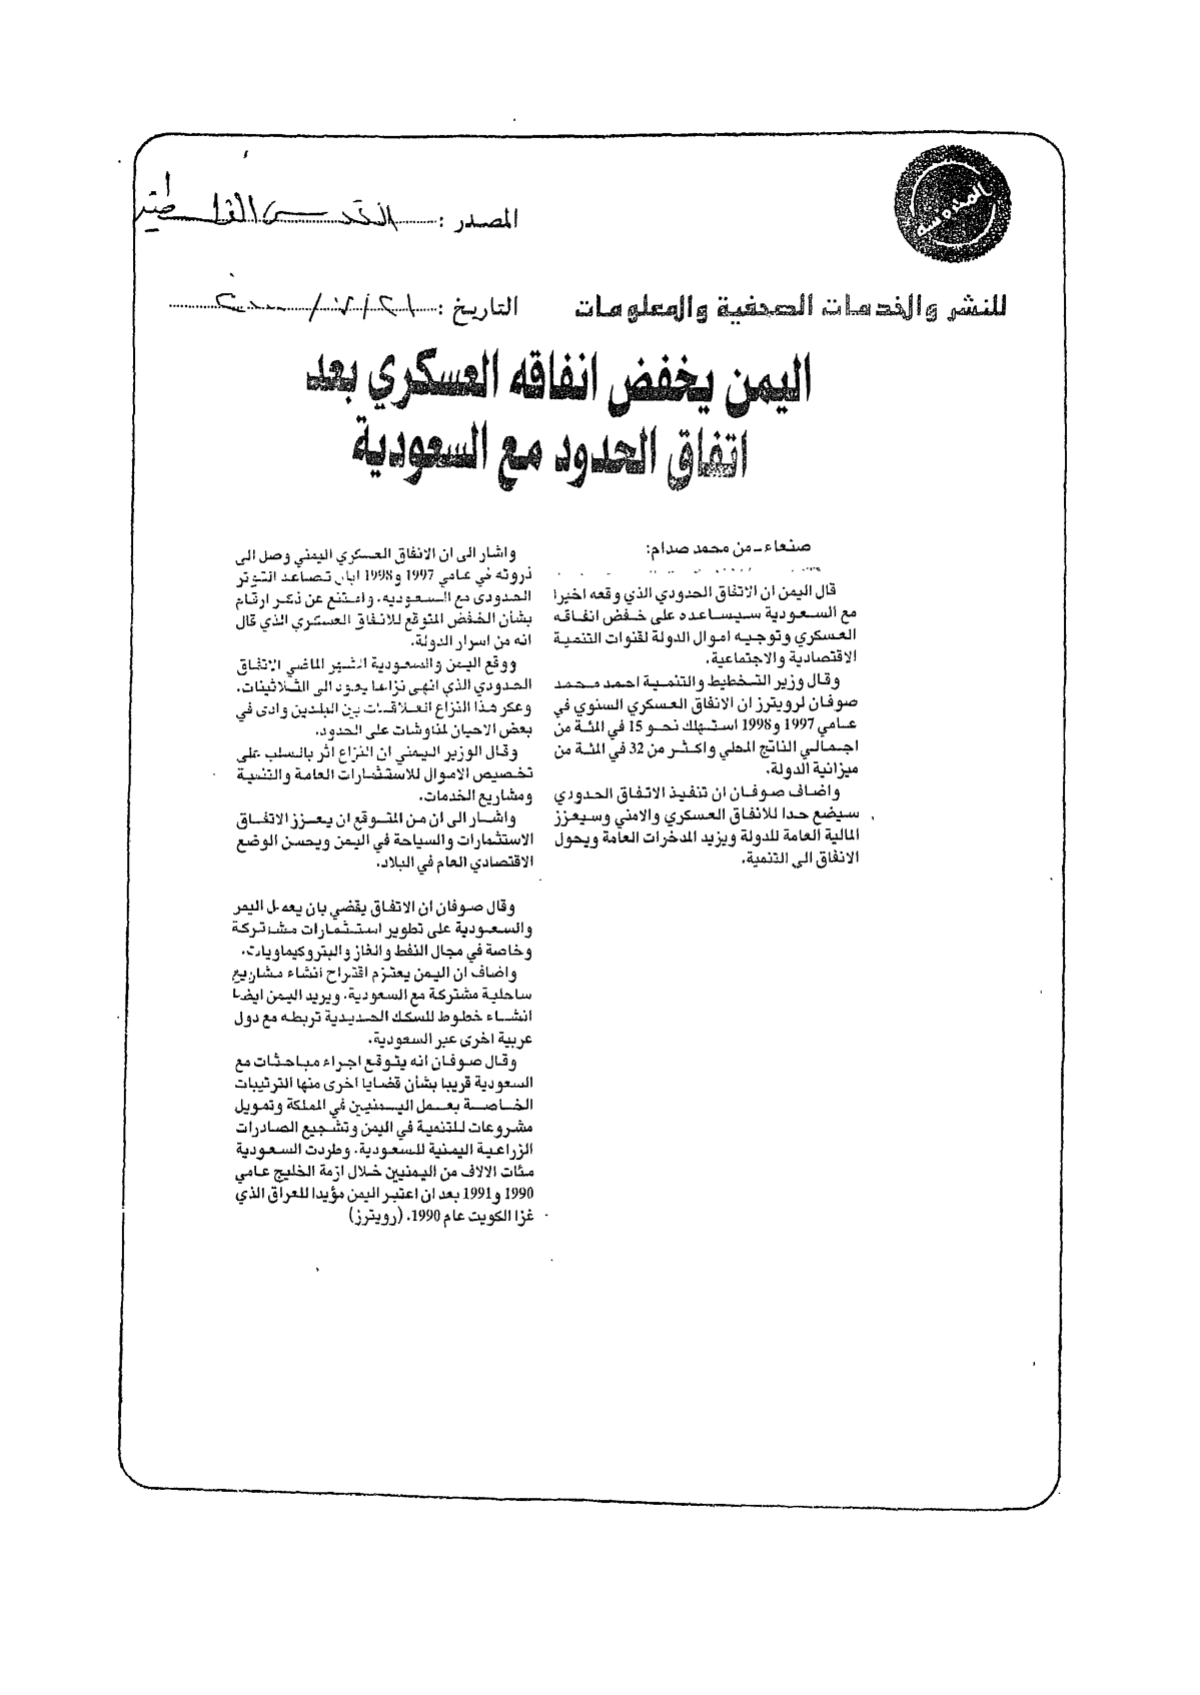 المصدر : القدس الفلسطينية
للنشر والخدمات الصحفية والمعلومات
التاريخ :
اليمن يخفض انفاقه العسكري بعد
اتفاق الحدود مع السعودية
صنعاء - من محمد صدام:
قال اليمن ان الاتفاق الحدودي الذي وقعه اخيرا
مع السعودية سيساعده على خفض انفاقه
العسكري وتوجيه اموال الدولة لقنوات التنمية
الاقتصادية والاجتماعية.
وقال وزير التخطيط والتنمية احمد محمد
صوفان لرويترز ان الانفاق العسكري السنوي في
عامي 1997 و1998 استهلك نحو 15 في المئة من
اجمالي الناتج المحلي واكثر من 32 في المئة من
ميزانية الدولة.
واضاف صوفان ان تنفيذ الاتفاق الحدودي
سيضع حدا للانفاق العسكري والامني وسيعزز
المالية العامة للدولة ويزيد المدخرات العامة ويحول
الانفاق الى التنمية.
واشار الى ان الانفاق العسكري اليمني وصل الى
ذروته في عامي 1997 و1998 ابان تصاعد التوتر
الحدودي مع السعودية. وامتنع عن ذكر ارقام
بشأن الخفض المتوقع للانفاق العسكري الذي قال
انه من اسرار الدولة.
ووقع اليمن والسعودية الشهر الماضي الاتفاق
الحدودي الذي انهى نزاعا يعود الى الثلاثينات.
وعكر هذا النزاع العلاقات بين البلدين وادى في
بعض الاحيان لمناوشات على الحدود.
وقال الوزير اليمني ان النزاع اثر بالسلب على
تخصيص الاموال للاستثمارات العامة والتنمية
ومشاريع الخدمات.
واشار الى ان من المتوقع ان يعزز الاتفاق
الاستثمارات والسياحة في اليمن ويحسن الوضع
الاقتصادي العام في البلاد.
وقال صوفان ان الاتفاق يقضي بان يعمل اليمن
والسعودية على تطوير استثمارات مشتركة
وخاصة في مجال النفط والغاز والبتروكيماويات.
واضاف ان اليمن يعتزم اقتراح انشاء مشاريع
ساحلية مشتركة مع السعودية. ويريد اليمن ايضا
انشاء خطوط للسكك الحديدية تربطه مع دول
عربية اخرى عبر السعودية.
وقال صوفان انه يتوقع اجراء مباحثات مع
السعودية قريبا بشأن قضايا اخرى منها الترتيبات
الخاصة بعمل اليمنيين في المملكة وتمويل
مشروعات للتنمية في اليمن وتشجيع الصادرات
الزراعية اليمنية للسعودية. وطردت السعودية
مئات الالاف من اليمنيين خلال ازمة الخليج عامي
1990 و1991 بعد ان اعتبر اليمن مؤيدا للعراق الذي
غزا الكويت عام 1990. (رويترز)